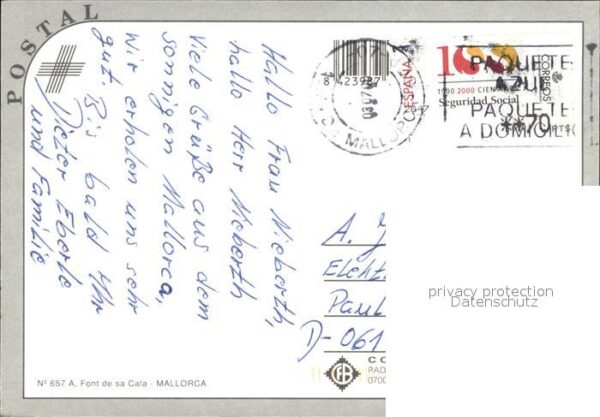 POSTAL
Hallo Frau Nieberth,
hallo Herr Nieberth
Viele Grüße aus dem
sonnigen Mallorca,
Wir erholen uns sehr
gut. Bis bald Ihr
Dieter Eberle
und Familie
8 423987
MALLORCA
ESPAÑA
100
1900 2000 CIEN
Seguridad Social
CORREOS
PAQUETE
AZUL
PAQUETE
A DOMICIL
**70
PTS
A.
Elekt
Paul
D-061
privacy protection
Datenschutz
CO
PAD
0700
Nº 657 A, Font de sa Cala - MALLORCA